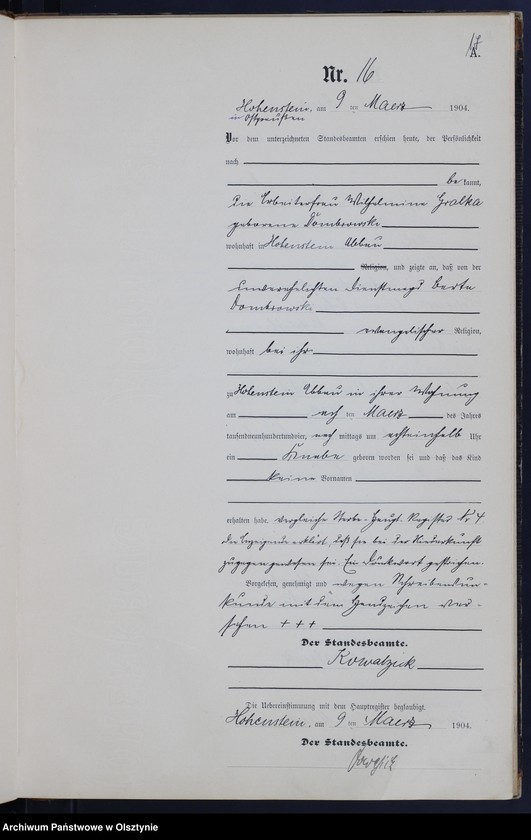 A.
Nr. 16
Hohenstein, am 9 ten Maerz 1904.
in Ostpreußen
Vor dem unterzeichneten Standesbeamten erschien heute, der Persönlichkeit
nach
be kannt,
die Arbeiterfrau Wilhelmine Gralka
geborene Dombrowski
wohnhaft in Hohenstein Abbau
Religion, und zeigte an, daß von der
unverehelichten Dienstmagd Berta
Dombrowski
evangelischer Religion,
wohnhaft bei ihr
zu Hohenstein Abbau in ihrer Wohnung
am ten Maerz des Jahres
tausendneunhundertundvier, nach mittags um achteinhalb Uhr
ein Knabe geboren worden sei und daß das Kind
keine Vornamen
erhalten habe. Vergleiche Sterbe-Haupt-Register Nr 4
Die Anzeigende erklärt, daß sie bei der Niederkunft
zugegen gewesen sei. Ein Druckwort gestrichen.
Vorgelesen, genehmigt und wegen Schreibensun-
kunde mit dem Handzeichen ver-
sehen + + +
Der Standesbeamte.
Kowalzick
Die Uebereinstimmung mit dem Hauptregister beglaubigt.
Hohenstein, am 9 ten Maerz 1904.
Der Standesbeamte.
Archiwum Państwowe w Olsztynie